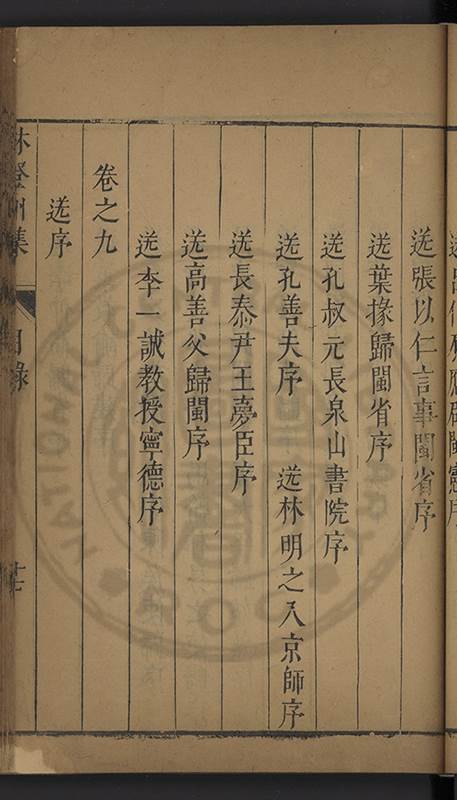 送張以仁言事閩省序
送葉掾歸閩省序
送孔叔元長泉山書院序
送孔善夫序 送林明之入京師序
送長泰尹王夢臣序
送高善父歸閩序
送李一誠教授寧德序
卷之九
送序
林登州集 目錄